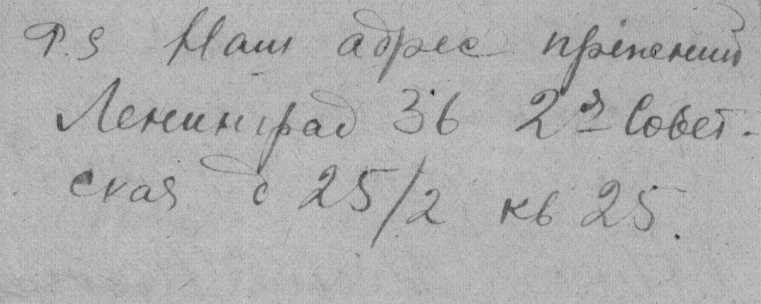 P.S Наш адрес прежний
Ленинград 36 2я Совет-
ская д 25/2 кв 25.